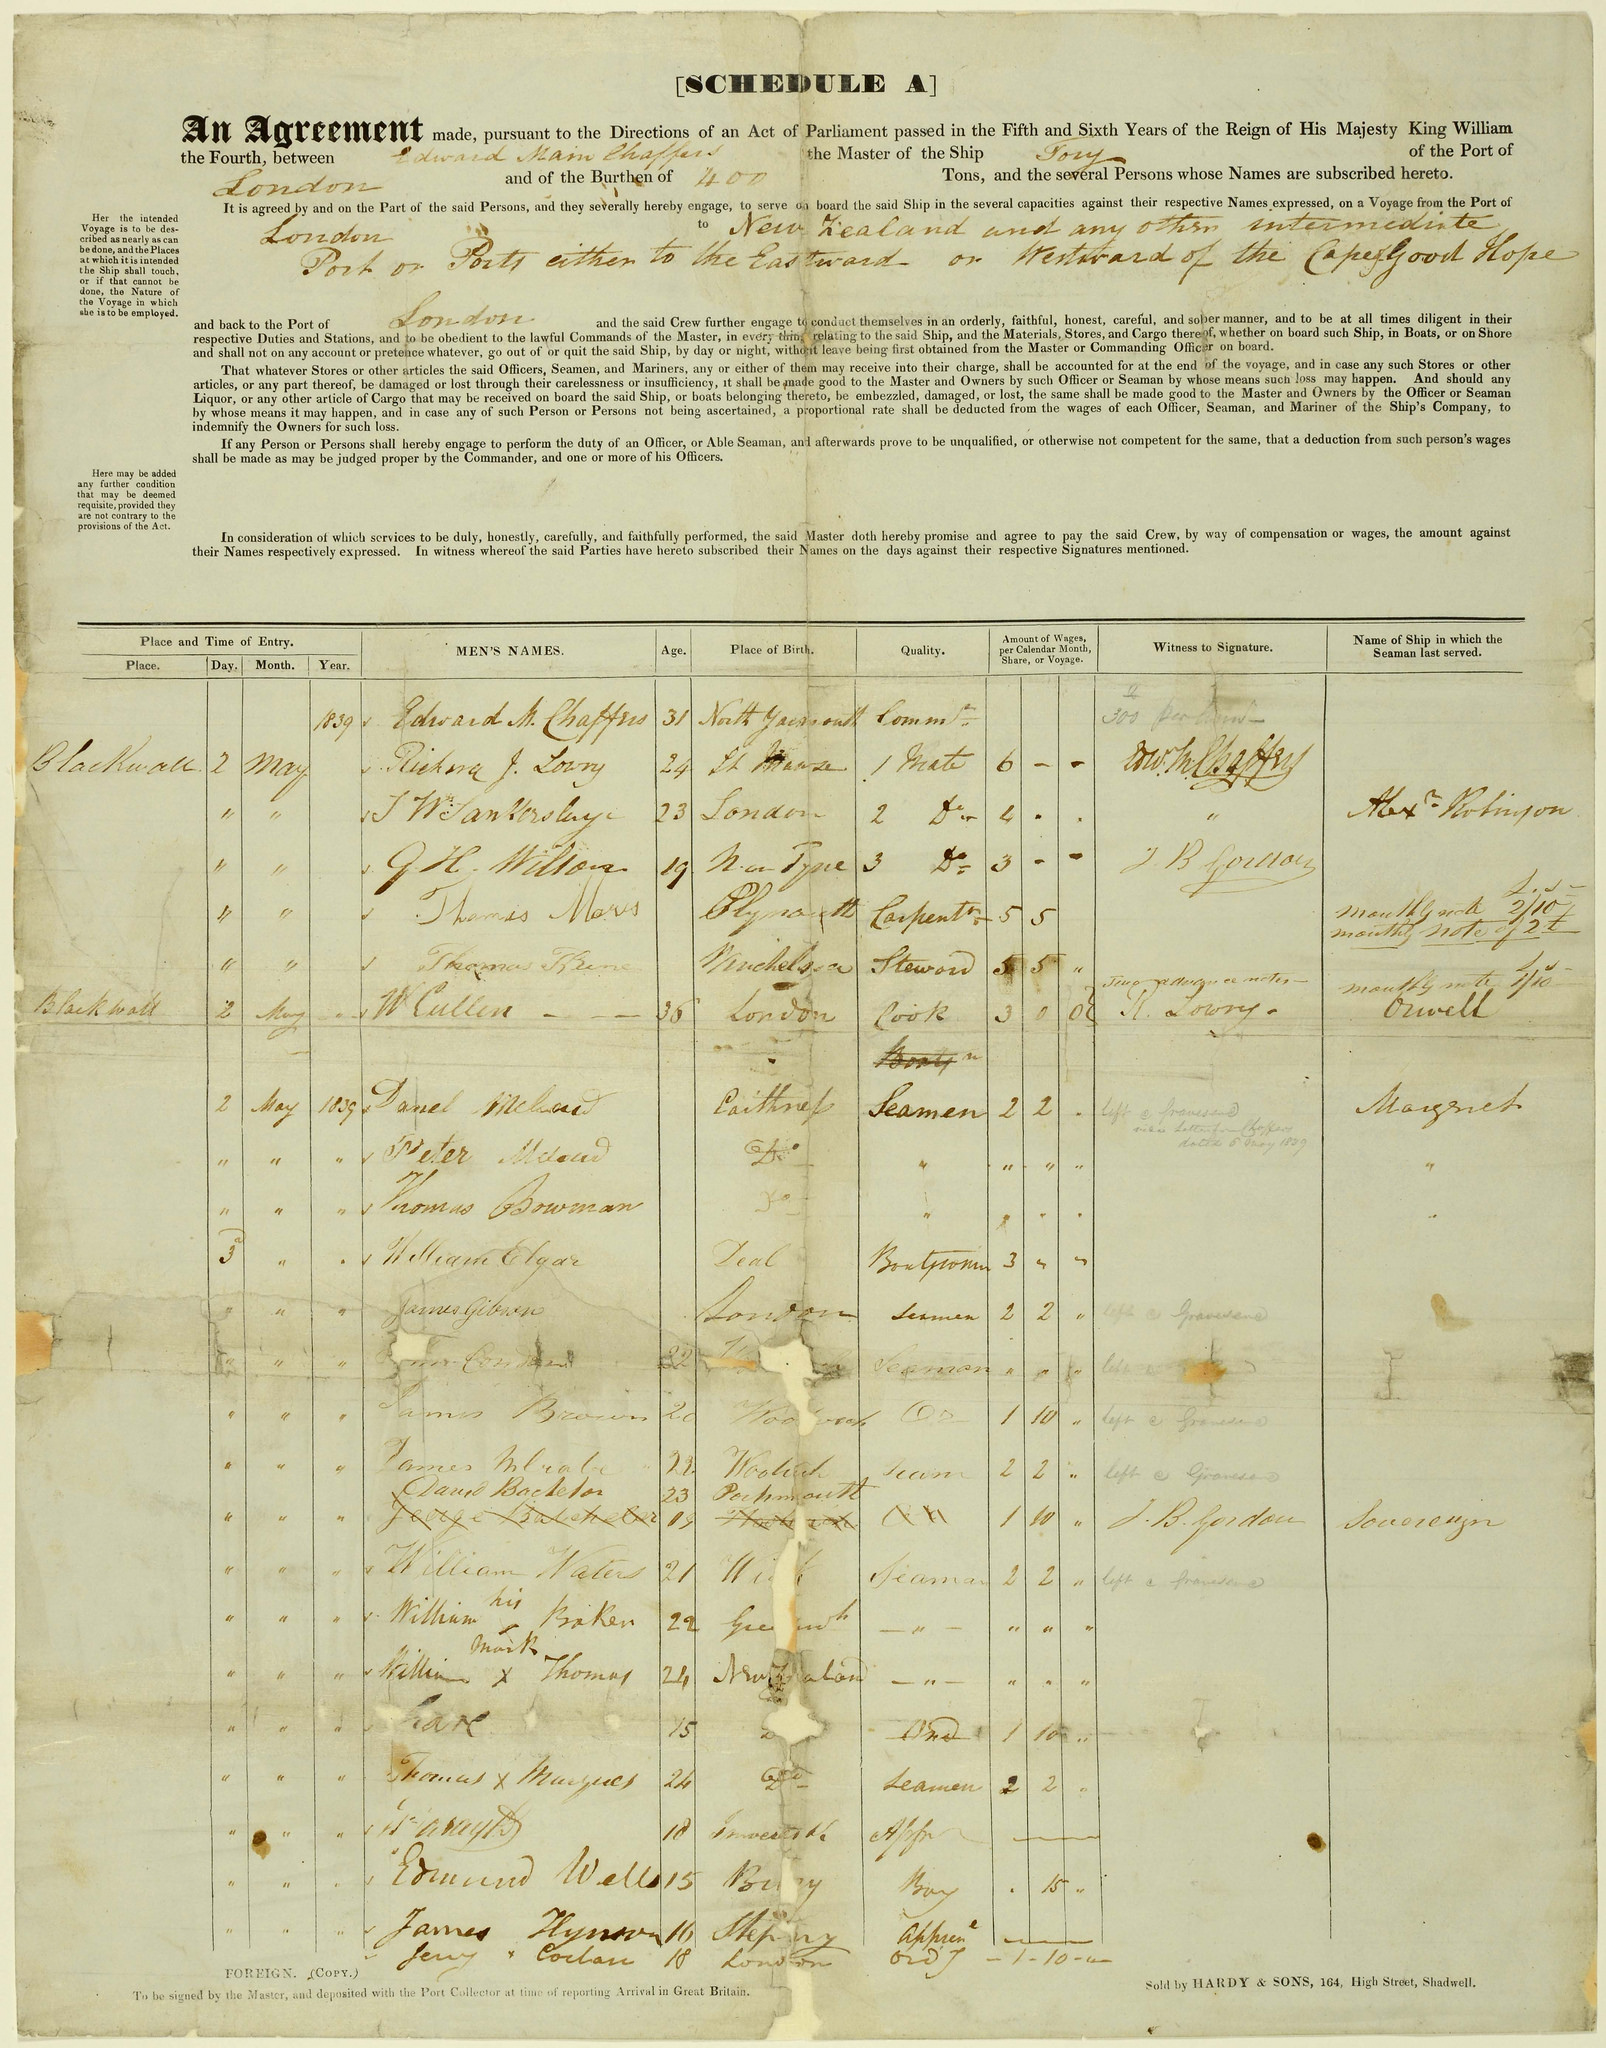 [SCHEDULE A]
An Agreement made, pursuant to the Directions of an Act of Parliament passed in the Fifth and Sixth Years of the Reign of His Majesty King William
the Fourth, between Edward Main Chaffers the Master of the Ship Tory of the Port of
London and of the Burthen of 400 Tons, and the several Persons whose Names are subscribed hereto.
It is agreed by and on the Part of the said Persons, and they severally hereby engage, to serve on board the said Ship in the several capacities against their respective Names expressed, on a Voyage from the Port of
London to New Zealand and any other intermediate
Port or Ports either to the Eastward or Westward of the Cape of Good Hope
Her the intended
Voyage is to be des-
cribed as nearly as can
be done, and the Places
at which it is intended
the Ship shall touch,
or if that cannot be
done, the Nature of
the Voyage in which
she is to be employed.
and back to the Port of London and the said Crew further engage to conduct themselves in an orderly, faithful, honest, careful, and sober manner, and to be at all times diligent in their
respective Duties and Stations, and to be obedient to the lawful Commands of the Master, in every thing relating to the said Ship, and the Materials, Stores, and Cargo thereof, whether on board such Ship, in Boats, or on Shore
and shall not on any account or pretence whatever, go out of or quit the said Ship, by day or night, without leave being first obtained from the Master or Commanding Officer on board.
That whatever Stores or other articles the said Officers, Seamen, and Mariners, any or either of them may receive into their charge, shall be accounted for at the end of the voyage, and in case any such Stores or other
articles, or any part thereof, be damaged or lost through their carelessness or insufficiency, it shall be made good to the Master and Owners by such Officer or Seaman by whose means such loss may happen. And should any
Liquor, or any other article of Cargo that may be received on board the said Ship, or boats belonging thereto, be embezzled, damaged, or lost, the same shall be made good to the Master and Owners by the Officer or Seaman
by whose means it may happen, and in case any of such Person or Persons not being ascertained, a proportional rate shall be deducted from the wages of each Officer, Seaman, and Mariner of the Ship's Company, to
indemnify the Owners for such loss.
If any Person or Persons shall hereby engage to perform the duty of an Officer, or Able Seaman, and afterwards prove to be unqualified, or otherwise not competent for the same, that a deduction from such person's wages
shall be made as may be judged proper by the Commander, and one or more of his Officers.
Here may be added
any further condition
that may be deemed
requisite, provided they
are not contrary to the
provisions of the Act.
In consideration of which services to be duly, honestly, carefully, and faithfully performed, the said Master doth hereby promise and agree to pay the said Crew, by way of compensation or wages, the amount against
their Names respectively expressed. In witness whereof the said Parties have hereto subscribed their Names on the days against their respective Signatures mentioned.
Place and Time of Entry. MEN'S NAMES. Age. Place of Birth. Quality. Amount of Wages, per Calendar Month, Share, or Voyage. Witness to Signature. Name of Ship in which the Seaman last served.
Place. Day. Month. Year.
1839 Edward M. Chaffers 31 North Yarmouth Commr 300
Blackwall 2 May Richard J. Lowry 24 St Mawse 1 Mate 6 - - Edw. M. Chaffers
" " 23 London 2 Do 4 . . " Alexr Robinson
" " G H. Wilton 19 N. on Tyne 3 Do 3 - - J B Gordon
" " Thomas Mars Plymouth Carpentr 5 5 monthly note 2/10
monthly note of 2 £
" " Thomas Winchelsea Steward 5 5 " monthly note
Two advance notes
Blackwall 2 May Wm Cullen 36 London Cook 3 0 0 R. Lowry Orwell
2 May 1839 Daniel Caithness Seamen 2 2 . left @ Gravesend Margret
dated 5 May 1839
" " " Peter Do " " " " "
" " " Thomas Bowman Do " " . .
3 " " William Elgar Deal Boatswain 3 " "
" " " James Gibson London Seamen 2 2 " left @ Gravesend
" " " 22 Seaman " " " left
" " " James Brown 20 Woolwich Or 1 10 " left @ Gravesend
" " " James 22 Woolwich Seam 2 2 " left @ Gravesend
David Bachelor 23 Portsmouth
" " " George Batchelor 19 1 10 " J. B. Gordon Sovereign
" " " William Waters 21 Wick Seaman 2 2 " left @ Gravesend
" " " William his Baker 22 Greenwich - " - " " "
mark
" " " William x Thomas 24 New Zealand - " - " " "
" " " 15 Ord 1 10 "
" " " Thomas x Marques 24 Do Seamen 2 2 "
" " " 18 Appr
" " " Edmund Wells 15 Boy . 15 "
" " " James 16 Stepney Appren
18 London Ordy - 1 - 10 -
FOREIGN. (COPY.)
To be signed by the Master, and deposited with the Port Collector at time of reporting Arrival in Great Britain.
Sold by HARDY & SONS, 164, High Street, Shadwell.